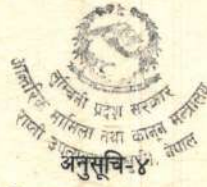 लुम्बिनी प्रदेश सरकार
आन्तरिक मामिला तथा कानून मन्त्रालय
राप्ती उपत्यका
नेपाल
अनुसूचि-४